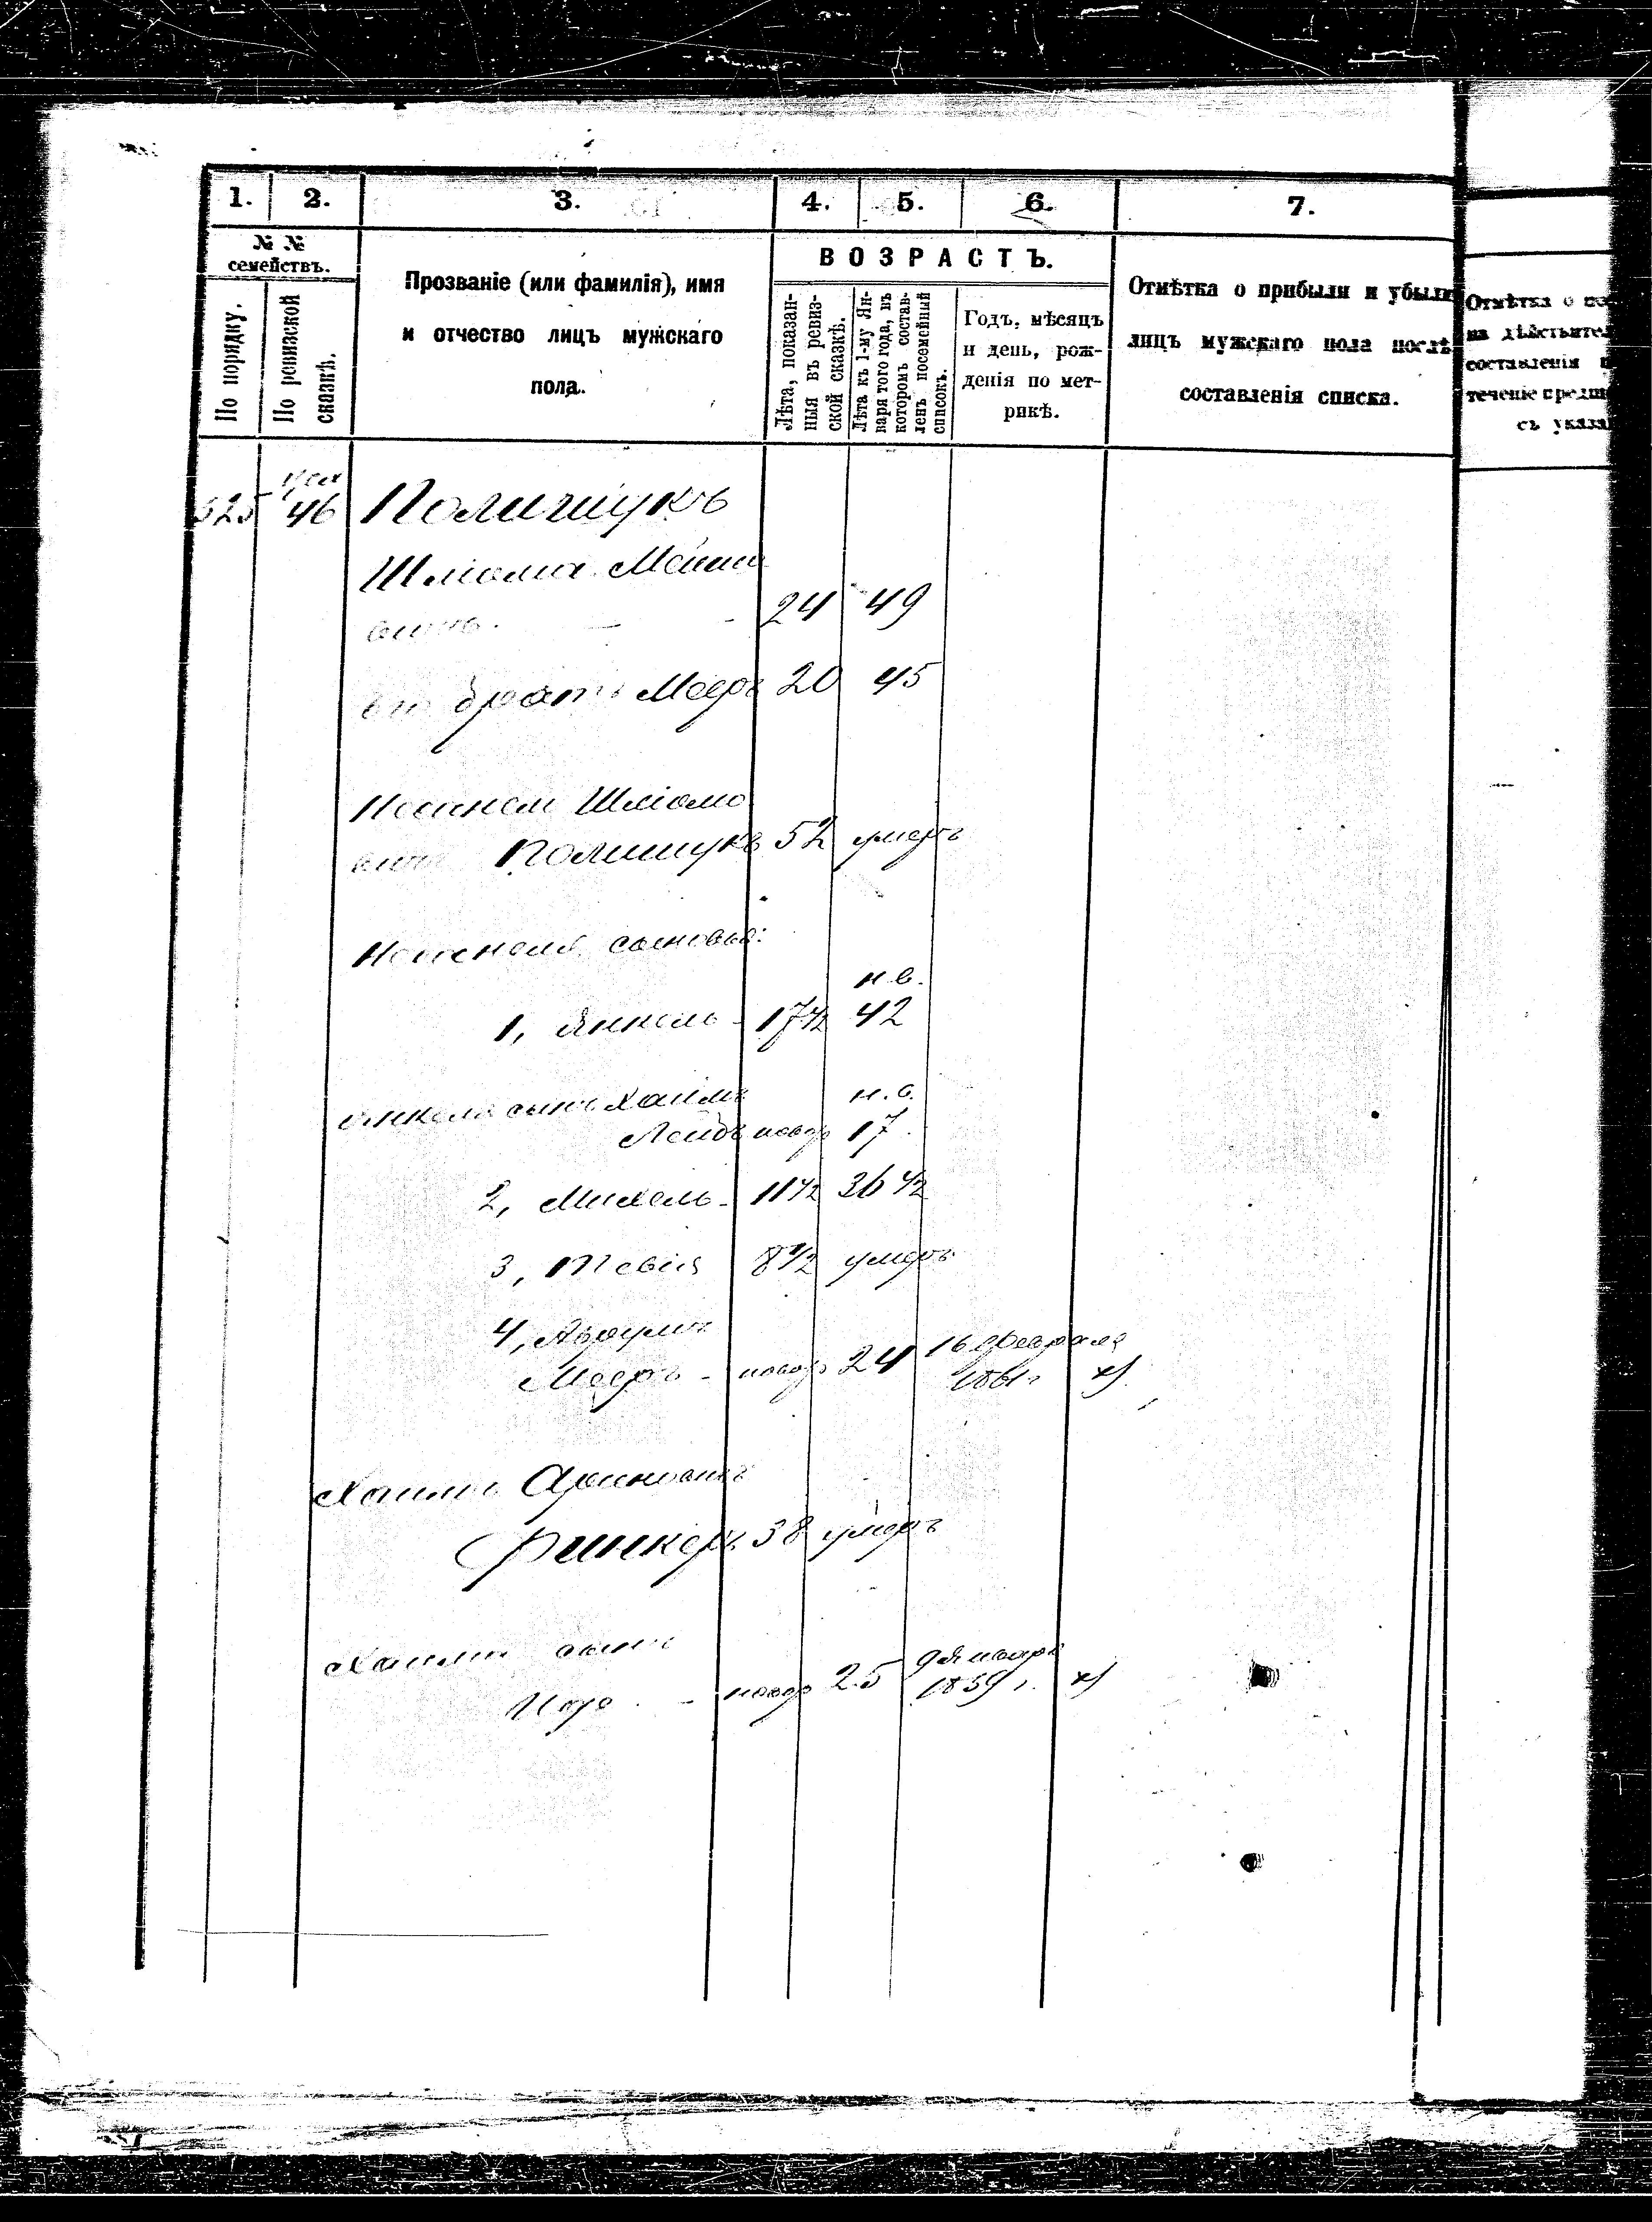 1. 2. 3. 4. 5. 6. 7.
№ №
семействъ.
По порядку.
По ревизской
сказкѣ.
Прозваніе (или фамилія), имя
и отчество лицъ мужскаго
пола.
ВОЗРАСТЪ.
Лѣта, показан-
ныя въ ревиз-
ской сказкѣ.
Лѣта къ 1-му Ян-
варя того года, въ
которомъ состав-
ленъ посемейный
списокъ.
Годъ, мѣсяцъ
и день, рож-
денія по мет-
рикѣ.
Отмѣтка о прибыли и убыли
лицъ мужскаго пола послѣ
составленія списка.
Отмѣтка о
на дѣйствител
составленія
теченіе предш
съ указа
525 46 Полищукъ
Шліома
вичъ. 24 49
его братъ Мееръ 20 45
Шліомо
вичъ Полищукъ 52 умеръ
сыновья:
н.в.
1, Янкель 17½ 42
Янкеля сынъ Хаимъ н.в.
Лейбъ новор 17
2, Михель 11½ 36½
3, Тевія 8½ умеръ
4, Аврумъ
Мееръ новор 24 16 февраля
1861 г х)
Хаимъ
Финкеръ 38 умеръ
Хаима сынъ
новор 25 9 Января
1859 г. х)